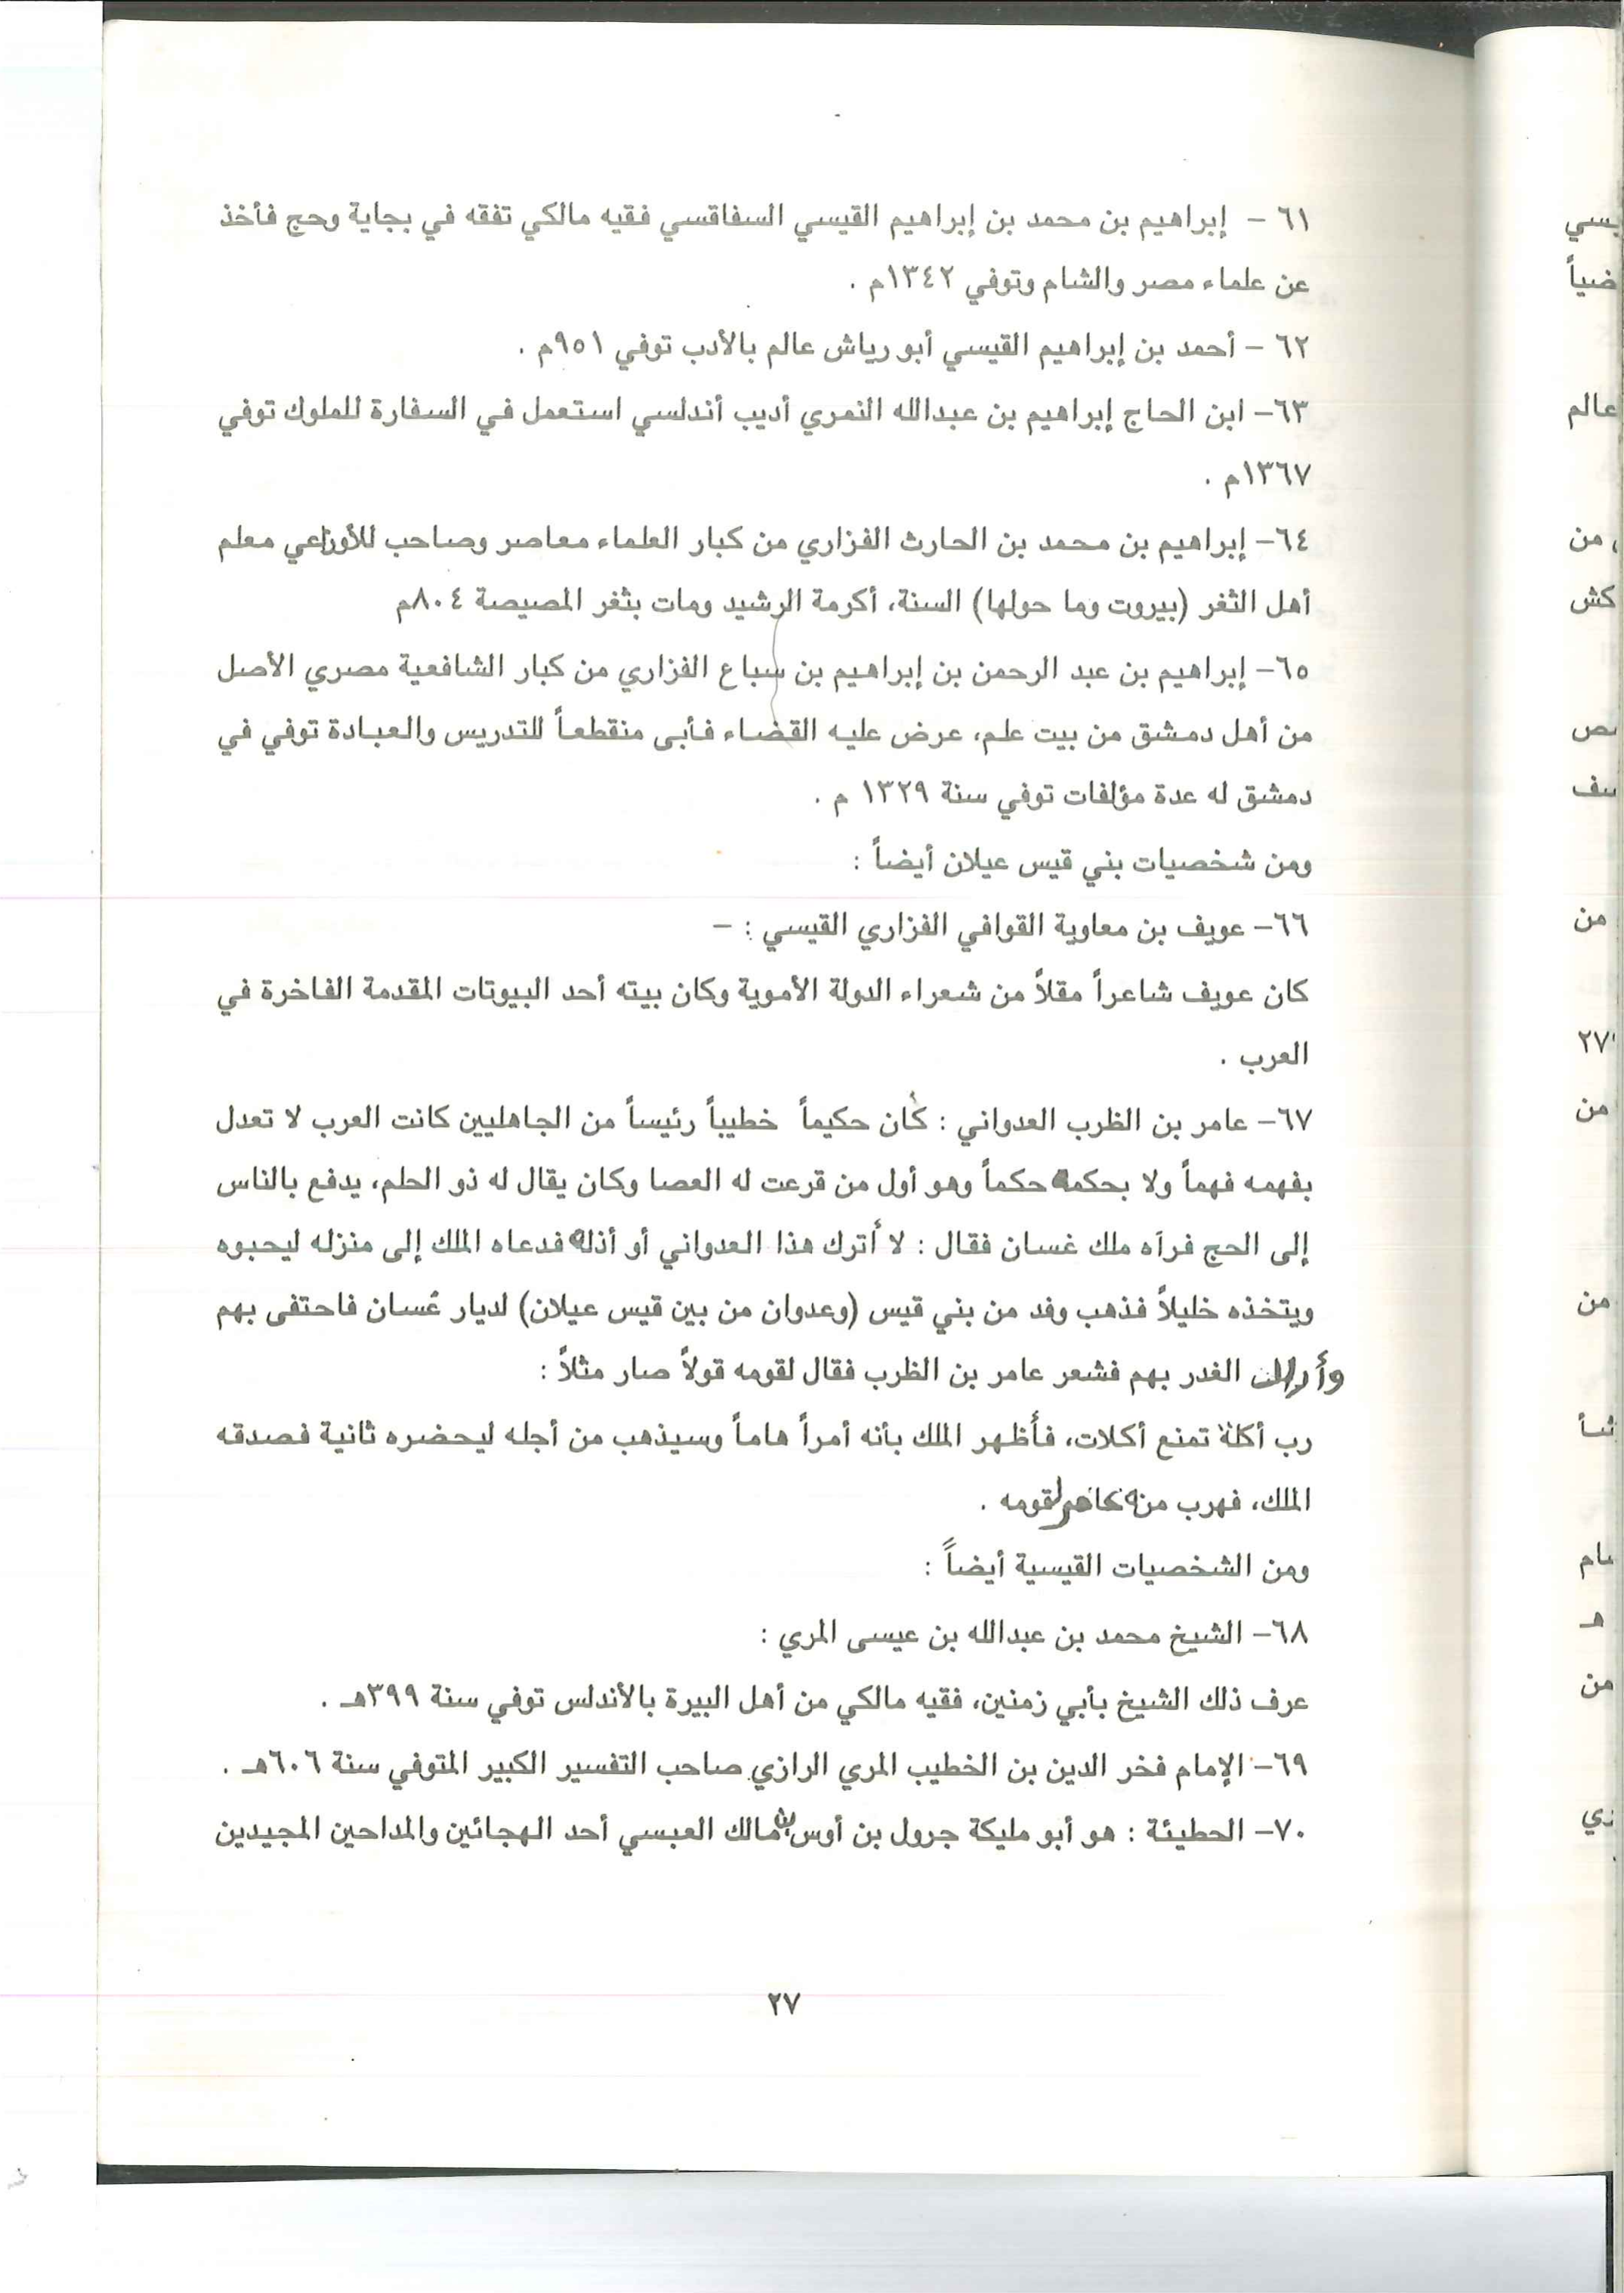 ٦١ - إبراهيم بن محمد بن إبراهيم القيسي السفاقسي فقيه مالكي تفقه في بجاية وحج فأخذ
عن علماء مصر والشام وتوفي ١٣٤٢م .
٦٢ - أحمد بن إبراهيم القيسي أبو رياش عالم بالأدب توفي ٩٥١م .
٦٣- ابن الحاج إبراهيم بن عبدالله النمري أديب أندلسي استعمل في السفارة للملوك توفي
١٣٦٧م .
٦٤- إبراهيم بن محمد بن الحارث الفزاري من كبار العلماء معاصر وصاحب للأوزاعي معلم
أهل الثغر (بيروت وما حولها) السنة، أكرمة الرشيد ومات بثغر المصيصة ٨٠٤م
٦٥- إبراهيم بن عبد الرحمن بن إبراهيم بن سباع الفزاري من كبار الشافعية مصري الأصل
من أهل دمشق من بيت علم، عرض عليه القضاء فأبى منقطعاً للتدريس والعبادة توفي في
دمشق له عدة مؤلفات توفي سنة ١٣٢٩ م .
ومن شخصيات بني قيس عيلان أيضاً :
٦٦- عويف بن معاوية القوافي الفزاري القيسي : -
كان عويف شاعراً مقلاً من شعراء الدولة الأموية وكان بيته أحد البيوتات المقدمة الفاخرة في
العرب .
٦٧- عامر بن الظرب العدواني : كان حكيماً خطيباً رئيساً من الجاهليين كانت العرب لا تعدل
بفهمه فهماً ولا بحكمه حكماً وهو أول من قرعت له العصا وكان يقال له ذو الحلم، يدفع بالناس
إلى الحج فرآه ملك غسان فقال : لا أترك هذا العدواني أو أذله فدعاه الملك إلى منزله ليحبوه
ويتخذه خليلاً فذهب وفد من بني قيس (وعدوان من بين قيس عيلان) لديار غسان فاحتفى بهم
الغدر بهم فشعر عامر بن الظرب فقال لقومه قولاً صار مثلاً :
رب أكلة تمنع أكلات، فأظهر الملك بأنه أمراً هاماً وسيذهب من أجله ليحضره ثانية فصدقه
الملك، فهرب منه لقومه .
ومن الشخصيات القيسية أيضاً :
٦٨- الشيخ محمد بن عبدالله بن عيسى المري :
عرف ذلك الشيخ بأبي زمنين، فقيه مالكي من أهل البيرة بالأندلس توفي سنة ٣٩٩هـ .
٦٩- الإمام فخر الدين بن الخطيب المري الرازي صاحب التفسير الكبير المتوفي سنة ٦٠٦هـ .
٧٠- الحطيئة : هو أبو مليكة جرول بن أوس بن مالك العبسي أحد الهجائين والمداحين المجيدين
٢٧